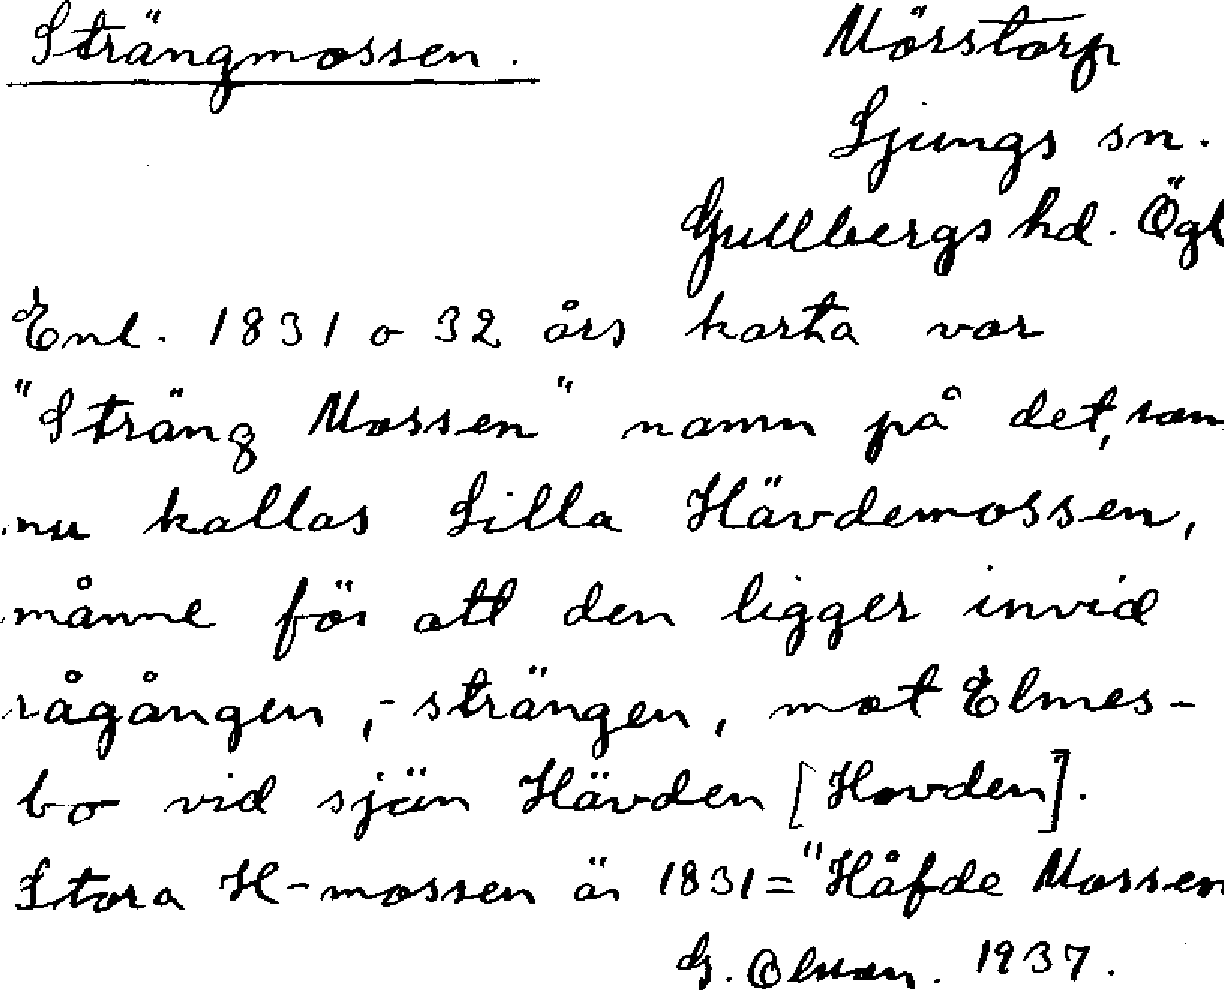 Strängmossen.
Mörstorp
Ljungs sn.
Gullbergs hd. Ögl
Enl. 1831 o 32 års karta var
"Sträng Mossen" namn på det, som
nu kallas Lilla Hävdemossen,
månne för att den ligger invid
rågången, - strängen, mot Elmes-
bo vid sjön Hävden [Hovden].
Stora H-mossen är 1831 = "Håfde Mossen
G. Olsson. 1937.